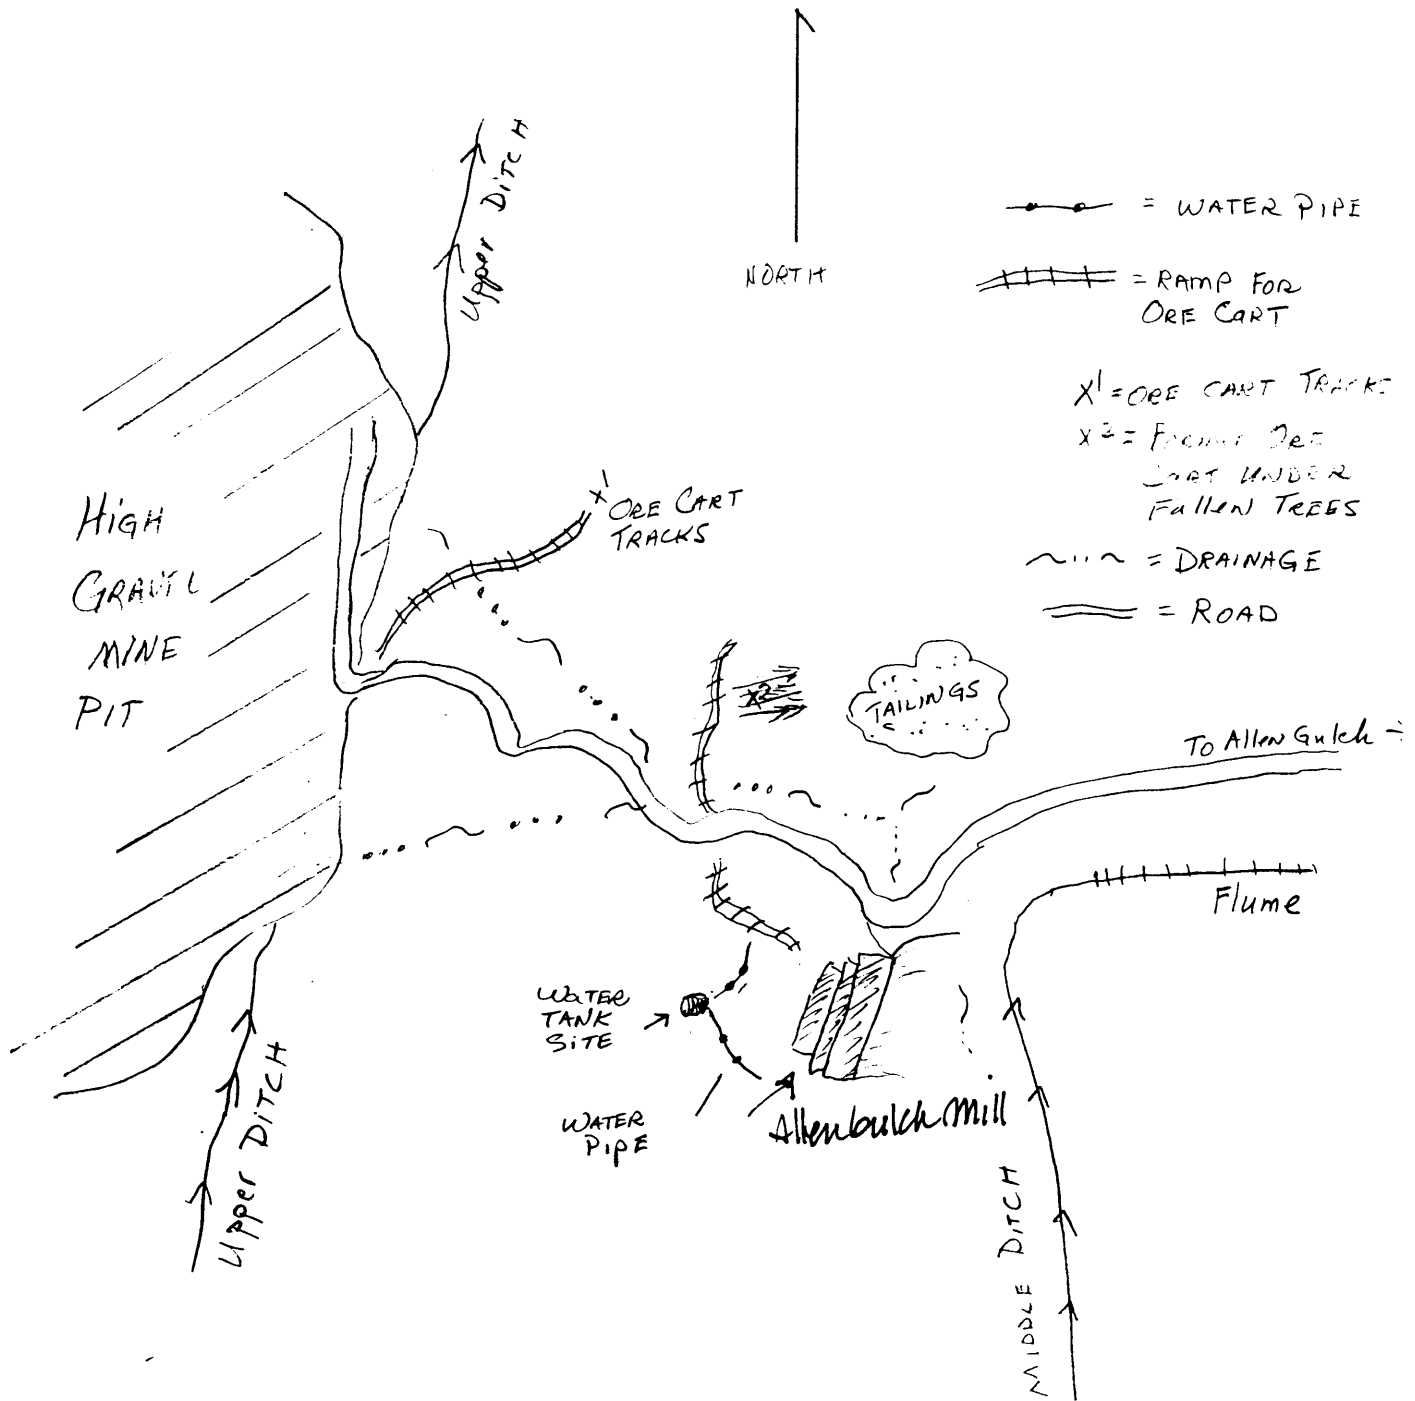 Upper DITCH
NORTH
= WATER PIPE
= RAMP FOR
ORE CART
X1 = ORE CART TRACKS
X2 = ORE
CART UNDER
Fallen TREES
~...~ = DRAINAGE
= ROAD
HIGH
GRAVEL
MINE
PIT
X1 ORE CART
TRACKS
X2
TAILINGS
To Allen Gulch
Flume
WATER
TANK
SITE
WATER
PIPE
Allen Gulch Mill
Upper DITCH
MIDDLE DITCH